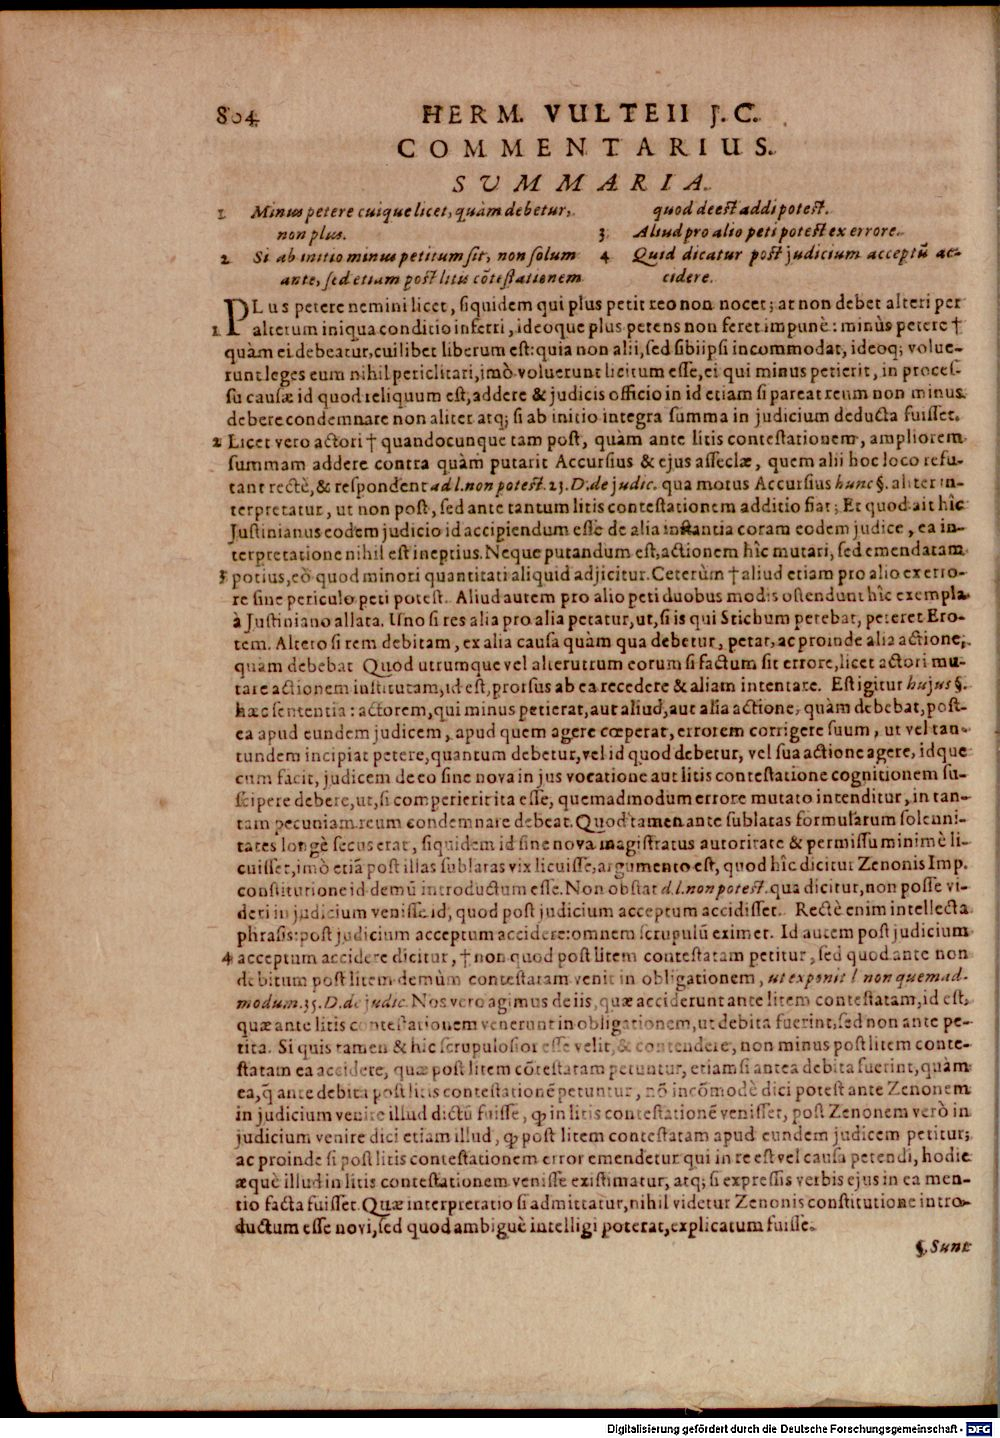 804
HERM. VULTEII J.C.
COMMENTARIUS.
SUMMARIA.
1 Minus petere cuique licet, quàm debetur,
non plus.
2 Si ab initio minus petitum sit, non solum
ante, sed etiam post litis cõtestationem
quod deest addi potest.
3 Aliud pro alio peti potest ex errore.
4 Quid dicatur post judicium acceptũ ac-
cidere.
PLus petere nemini licet, siquidem qui plus petit reo non nocet; at non debet alteri per
1 alterum iniqua conditio inferri, ideoque plus petens non feret impunè: minùs petere †
quàm ei debeatur, cuilibet liberum est: quia non alii, sed sibi ipsi incommodat, ideoq; volue-
runt leges eum nihil periclitari, imò voluerunt licitum esse, ei qui minus petierit, in proces-
su causæ id quod reliquum est, addere & judicis officio in id etiam si pareat reum non minus
debere condemnare non aliter atq; si ab initio integra summa in judicium deducta fuisset.
2 Licet vero actori † quandocunque tam post, quàm ante litis contestationem, ampliorem
summam addere contra quàm putarit Accursius & ejus asseclæ, quem alii hoc loco refu-
tant rectè, & respondent ad l. non potest. 23. D. de judic. qua motus Accursius hunc §. aliter in-
terpretatur, ut non post, sed ante tantum litis contestationem additio fiat; Et quod ait hîc
Justinianus eodem judicio id accipiendum esse de alia instantia coram eodem judice, ea in-
terpretatione nihil est ineptius. Neque putandum est, actionem hîc mutari, sed emendatam
3 potius, eò quod minori quantitati aliquid adjicitur. Ceterùm † aliud etiam pro alio ex erro-
re sine periculo peti potest. Aliud autem pro alio peti duobus modis ostendunt hîc exempla
à Justiniano allata. Uno si res alia pro alia petatur, ut, si is qui Stichum petebat, peteret Ero-
tem. Altero si rem debitam, ex alia causa quàm qua debetur, petat, ac proinde alia actione,
quàm debebat Quod utrumque vel alterutrum eorum si factum sit errore, licet actori mu-
tare actionem institutam, id est, prorsus ab ea recedere & aliam intentare. Est igitur hujus §.
hæc sententia: actorem, qui minus petierat, aut aliud, aut alia actione, quàm debebat, post-
ea apud eundem judicem, apud quem agere cœperat, errorem corrigere suum, ut vel tan-
tundem incipiat petere, quantum debetur, vel id quod debetur, vel sua actione agere, idque
cum facit, judicem de eo sine nova in jus vocatione aut litis contestatione cognitionem su-
scipere debere, ut, si comperierit ita esse, quemadmodum errore mutato intenditur, in tan-
tam pecuniam reum condemnare debeat. Quod tamen ante sublatas formularum solenni-
tates longè secus erat, siquidem id sine nova magistratus autoritate & permissu minimè li-
cuisset, imò etiã post illas sublatas vix licuisse, argumento est, quod hîc dicitur Zenonis Imp.
constitutione id demũ introductum esse. Non obstat d. l. non potest. qua dicitur, non posse vi-
deri in judicium venisse id, quod post judicium acceptum accidisset. Rectè enim intellecta
phrasis: post judicium acceptum accidere: omnem scrupulũ eximet. Id autem post judicium
4 acceptum accidere dicitur, † non quod post litem contestatam petitur, sed quod ante non
debitum post litem demùm contestatam venit in obligationem, ut exponit l non quemad-
modum. 35. D. de judic. Nos vero agimus de iis, quæ acciderunt ante litem contestatam, id est,
quæ ante litis contestationem venerunt in obligationem, ut debita fuerint, sed non ante pe-
tita. Si quis tamen & hic scrupulosior esse velit, & contendere, non minus post litem conte-
statam ea accidere, quæ post litem cõtestatam petuntur, etiamsi antea debita fuerint, quàm
ea, q̃ ante debita post litis contestationẽ petuntur, nõ incõmodè dici potest ante Zenonem
in judicium venire illud dictũ fuisse, qp in litis contestationẽ venisset, post Zenonem verò in
judicium venire dici etiam illud, qp post litem contestatam apud eundem judicem petitur;
ac proinde si post litis contestationem error emendetur qui in re est vel causa petendi, hodie
æquè illud in litis contestationem venisse existimatur, atq; si expressis verbis ejus in ea men-
tio facta fuisset. Quæ interpretatio si admittatur, nihil videtur Zenonis constitutione intro-
ductum esse novi, sed quod ambiguè intelligi poterat, explicatum fuisse.
§. Sunt
Digitalisierung gefördert durch die Deutsche Forschungsgemeinschaft - DFG